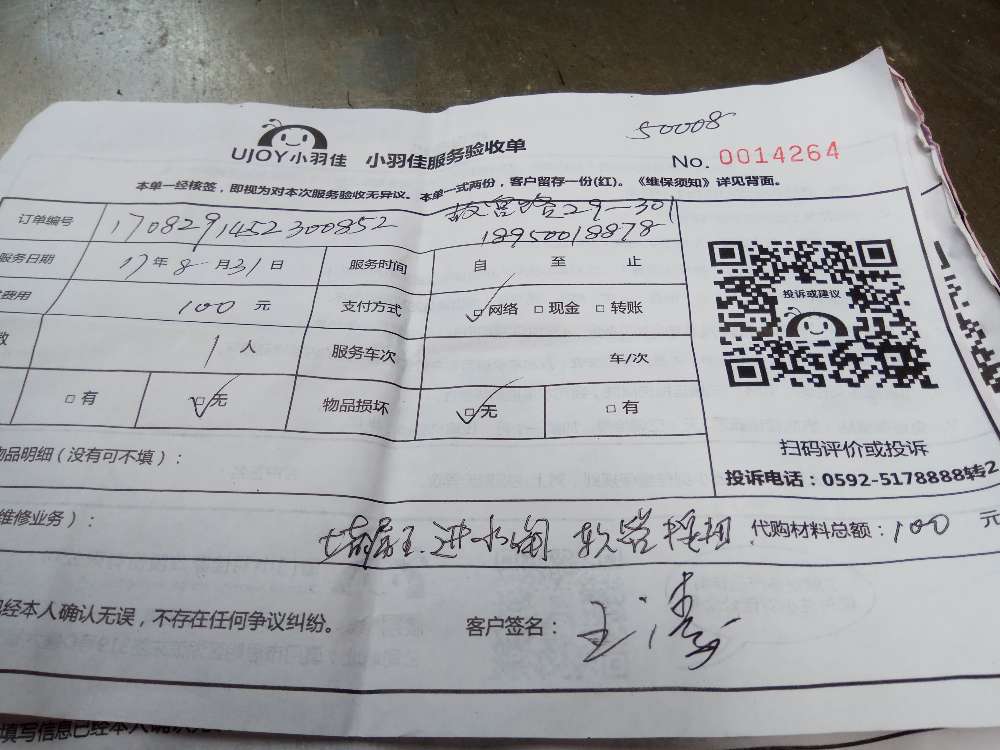 50008
UJOY小羽佳 小羽佳服务验收单
No. 0014264
本单一经核签，即视为对本次服务验收无异议。本单一式两份，客户留存一份(红)。《维保须知》详见背面。
订单编号 1708291452300852 故宫路29-301
18950018878
服务日期 17年8月31日 服务时间 自 至 止
费用 100 元 支付方式 □网络 □现金 □转账
投诉或建议
数 1人 服务车次 车/次
□有 □无 物品损坏 □无 □有
扫码评价或投诉
物品明细（没有可不填）：
投诉电话：0592-5178888转2
维修业务）： 进水阀 软管 代购材料总额：100 元
已经本人确认无误，不存在任何争议纠纷。 客户签名： 王
填写信息已经本人确认